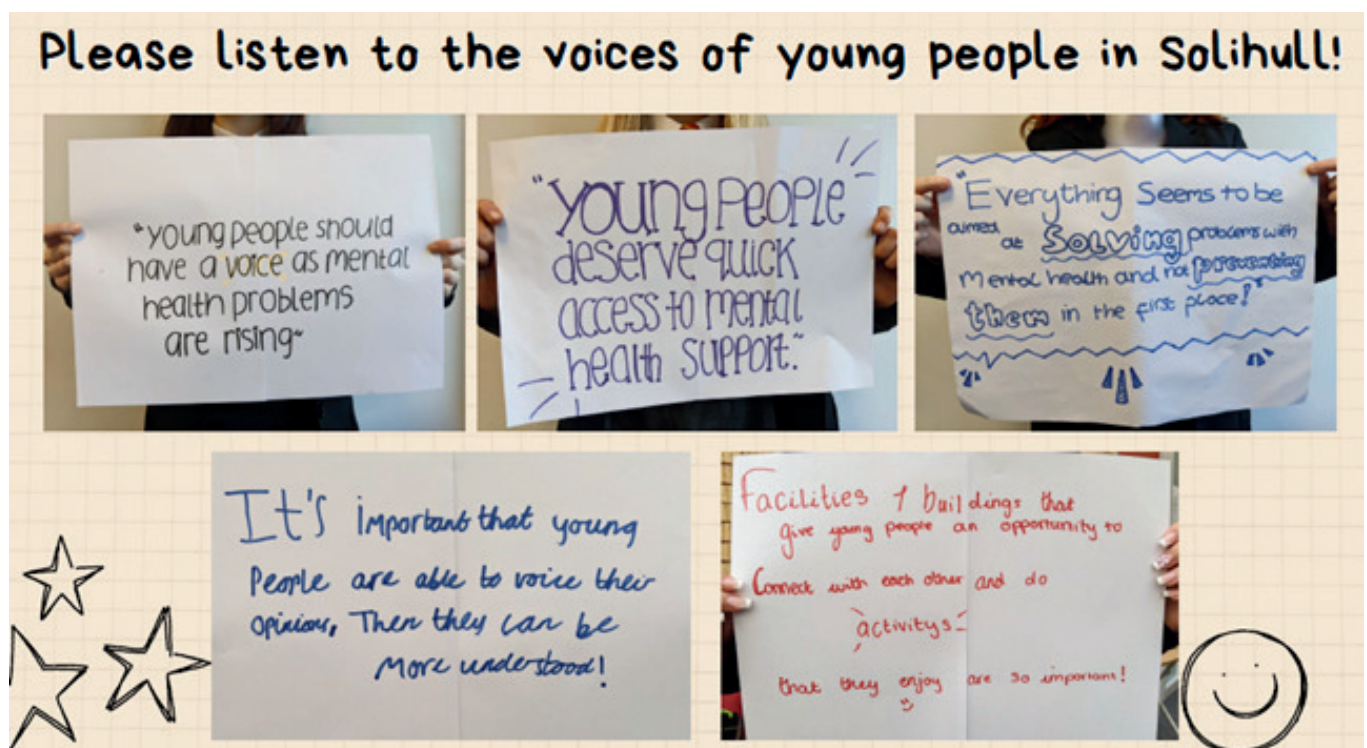 Please listen to the voices of young people in Solihull!
"young people should
have a voice as mental
health problems
are rising"
"Young People
deserve quick
access to mental
health support."
"Everything Seems to be
aimed at Solving problems with
mental health and not preventing
them in the first place!"
It's important that young
People are able to voice their
opinions, Then they can be
more understood!
Facilities & buildings that
give young people an opportunity to
Connect with each other and do
activitys
that they enjoy are so important!